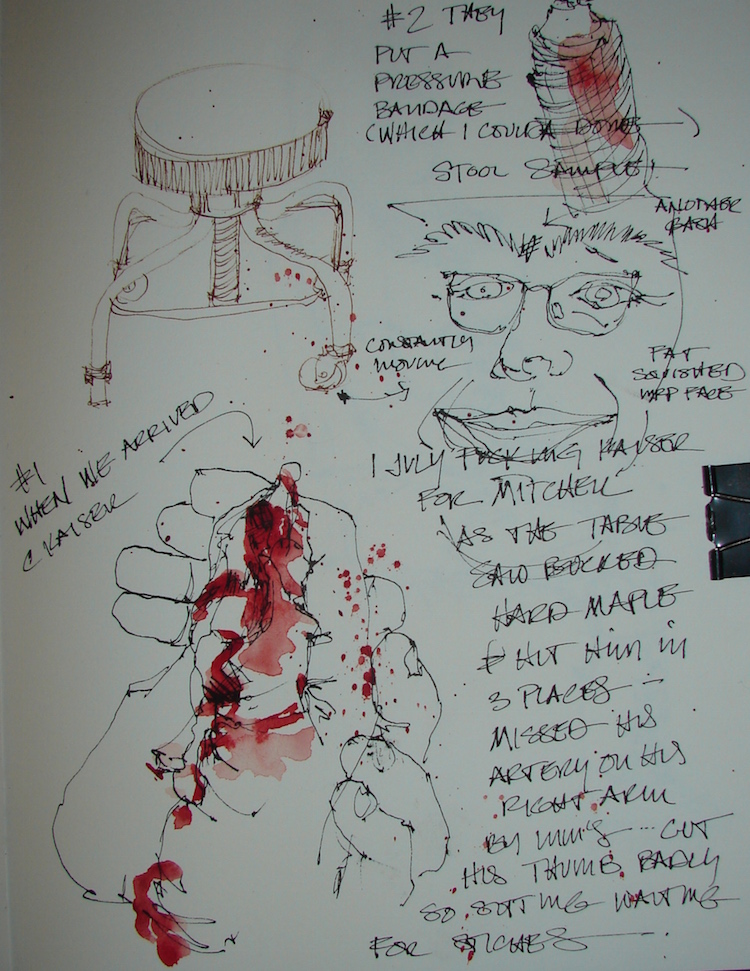 #2 THEY
PUT A
PRESSURE
BANDAGE
(WHICH I COULDA DONE
STOOL SAMPLE!
ANOTHER
RASH
CONSTANTLY
MOVING
FAT
SQUISHED
WRP FACE
#1
WHEN WE ARRIVED
C KAISER
1 JULY FUCKING KAISER
FOR MITCHELL
AS THE TABLE
SAW BUCKED
HARD MAPLE
& HIT HIM IN
3 PLACES -
MISSED HIS
ARTERY ON HIS
RIGHT ARM
BY MM'S ... CUT
HIS THUMB BADLY
SO SITTING WAITING
FOR STICHES